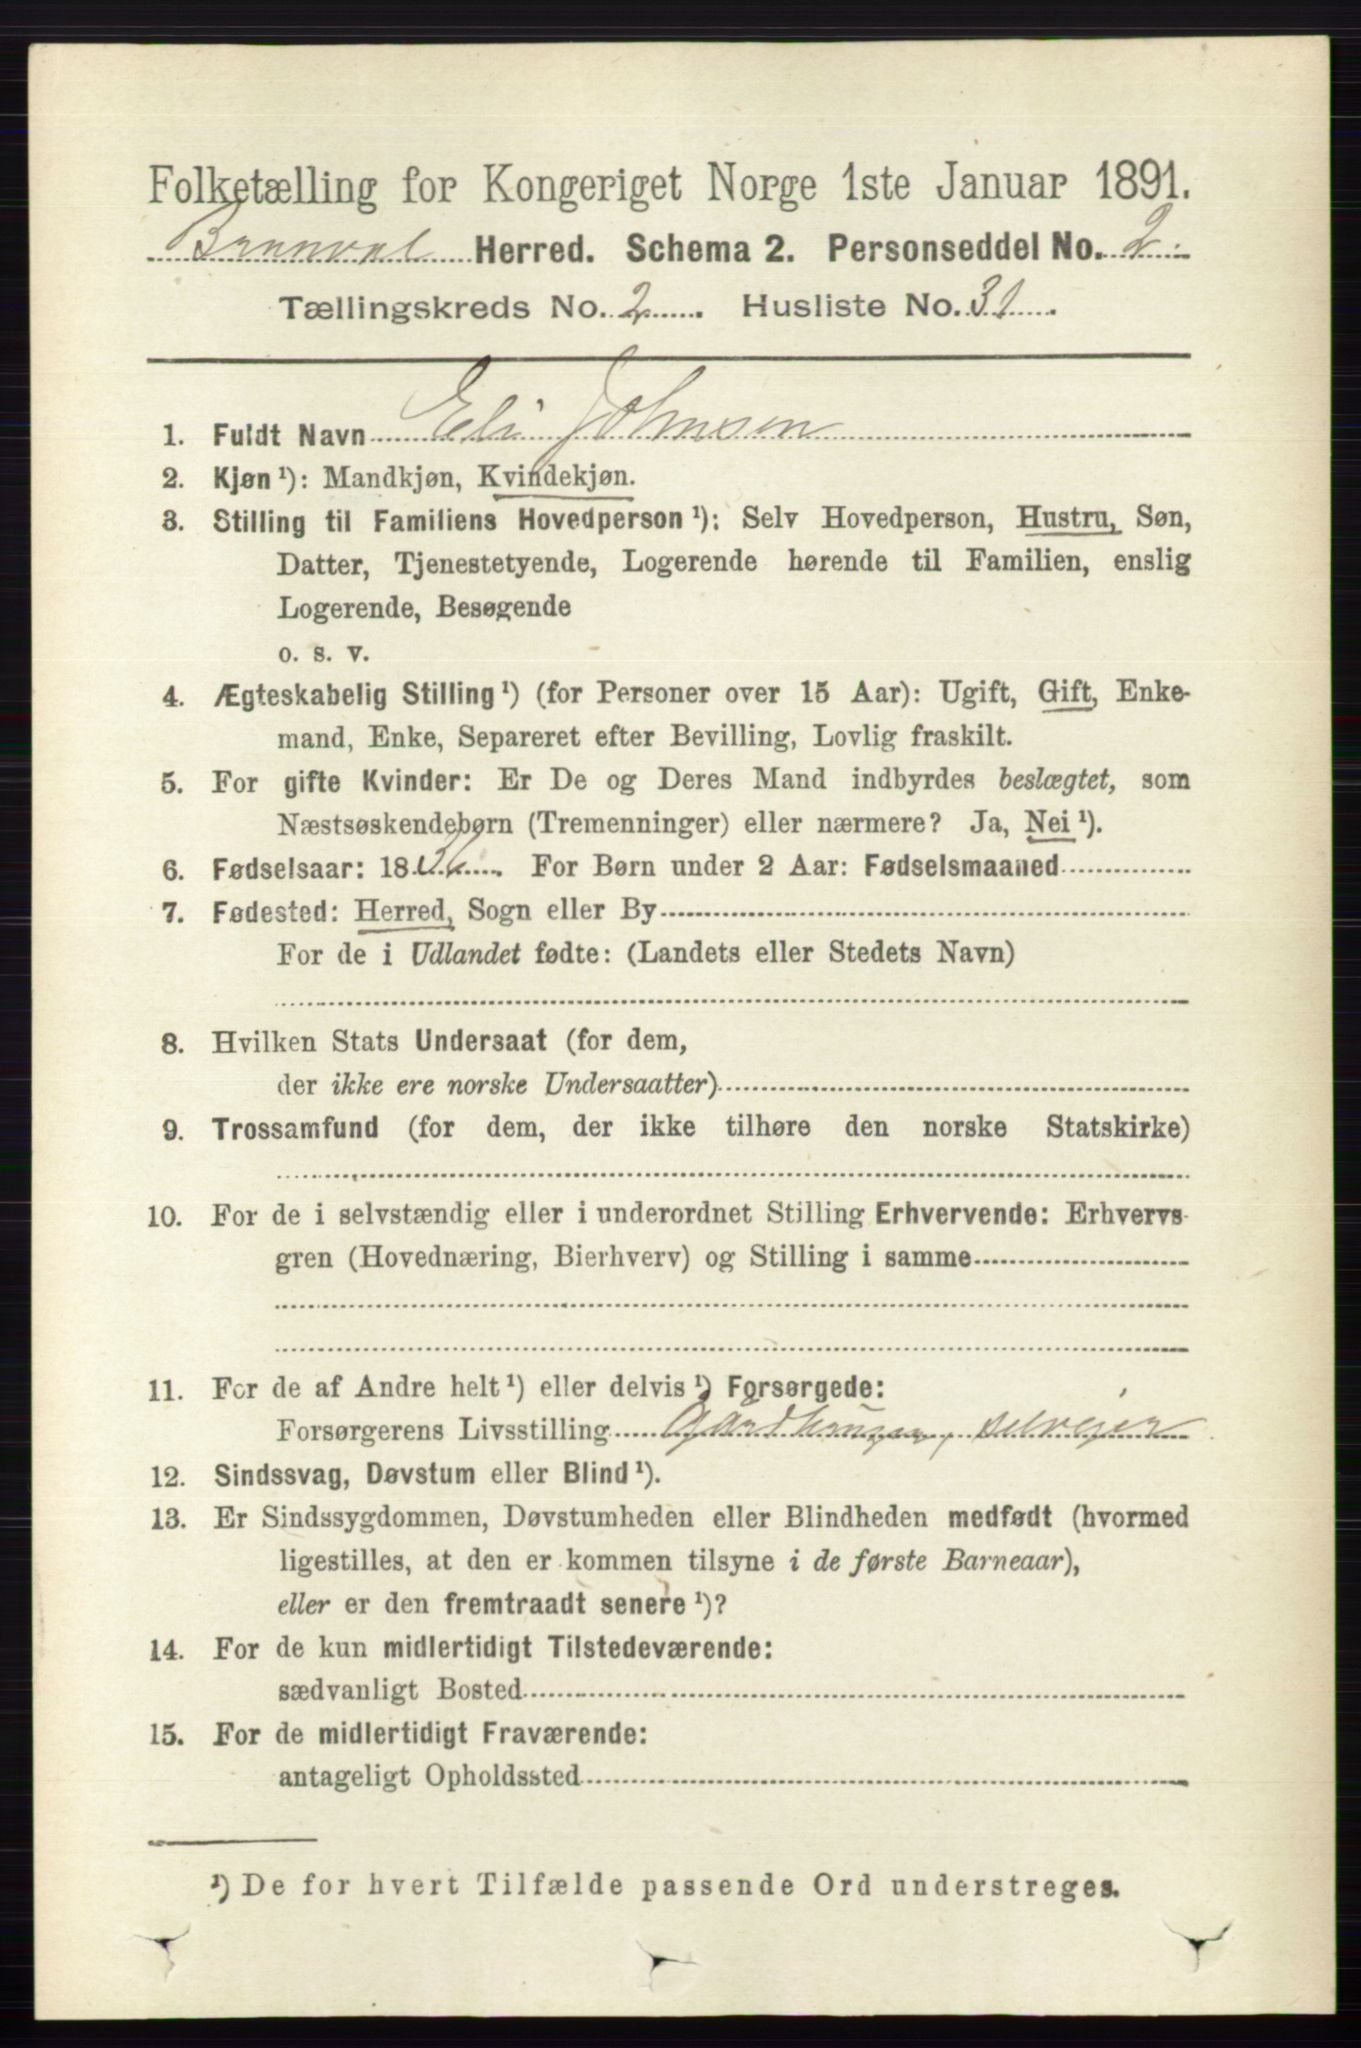 Folketælling for Kongeriget Norge 1ste Januar 1891.
Brunval Herred. Schema 2. Personseddel No. 2.
Tællingskreds No. 2. Husliste No. 31.
1. Fuldt Navn Eli Johnsen
2. Kjøn ¹): Mandkjøn, Kvindekjøn.
3. Stilling til Familiens Hovedperson ¹): Selv Hovedperson, Hustru, Søn,
Datter, Tjenestetyende, Logerende hørende til Familien, enslig
Logerende, Besøgende
o. s. v.
4. Ægteskabelig Stilling ¹) (for Personer over 15 Aar): Ugift, Gift, Enke-
mand, Enke, Separeret efter Bevilling, Lovlig fraskilt.
5. For gifte Kvinder: Er De og Deres Mand indbyrdes beslægtet, som
Næstsøskendebørn (Tremenninger) eller nærmere? Ja, Nei ¹).
6. Fødselsaar: 1836. For Børn under 2 Aar: Fødselsmaaned
7. Fødested: Herred, Sogn eller By
For de i Udlandet fødte: (Landets eller Stedets Navn)
8. Hvilken Stats Undersaat (for dem,
der ikke ere norske Undersaatter)
9. Trossamfund (for dem, der ikke tilhøre den norske Statskirke)
10. For de i selvstændig eller i underordnet Stilling Erhvervende: Erhvervs-
gren (Hovednæring, Bierhverv) og Stilling i samme
11. For de af Andre helt ¹) eller delvis ¹) Forsørgede:
Forsørgerens Livsstilling Gaardbruger, selveier
12. Sindssvag, Døvstum eller Blind ¹).
13. Er Sindssygdommen, Døvstumheden eller Blindheden medfødt (hvormed
ligestilles, at den er kommen tilsyne i de første Barneaar),
eller er den fremtraadt senere ¹)?
14. For de kun midlertidigt Tilstedeværende:
sædvanligt Bosted
15. For de midlertidigt Fraværende:
antageligt Opholdssted
¹) De for hvert Tilfælde passende Ord understreges.